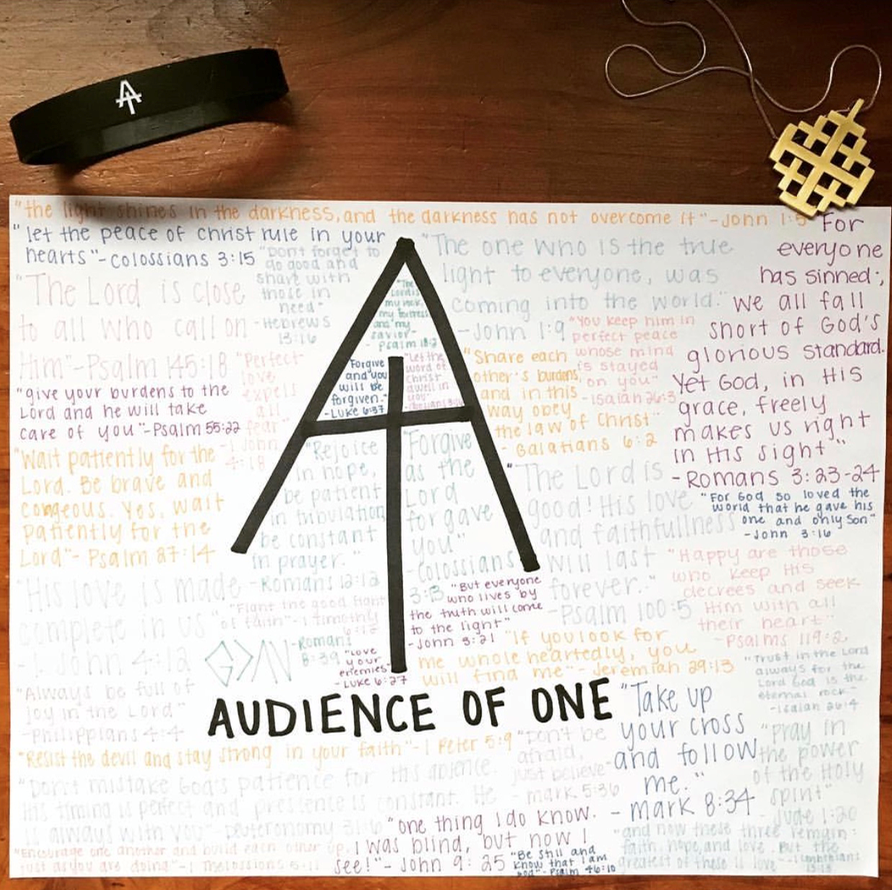 "the light shines in the darkness, and the darkness has not overcome it"-John 1:5
"let the peace of christ rule in your
hearts"-colossians 3:15
"Don't forget to
do good and
share with
those in
need"
-Hebrews
13:16
"The Lord is close
to all who call on
Him"-Psalm 145:18
"give your burdens to the
Lord and he will take
care of you"-Psalm 55:22
"Perfect
love
expels
all
fear"
1 John
4:18
"Wait patiently for the
Lord. Be brave and
cougeous. Yes, wait
patiently for the
Lord"- Psalm 27:14
"His love is made
complete in us"
-1 John 4:12
"Always be full of
joy in the Lord"
-Philippians 4:4
my fortress
and my
savior"
Psalm 18:2
"Forgive
and you
will be
forgiven."
-Luke 6:37
"Let the
word of
christ
dwell in
you"
"Rejoice
in hope,
be patient
in tribulation
be constant
in prayer."
-Romans 12:12
"Forgive
as the
Lord
forgave
you"
-Colossians
3:13
"Fight the good fight
of faith"-1 Timothy
6:12
G>ΛV
-Romans
8:39
"Love
your
enemies"
-Luke 6:27
"The one who is the true
light to everyone, was
coming into the world."
-John 1:9
"You keep him in
perfect peace
whose mind
is stayed
on you"
-Isaiah 26:3
"Share each
other's burdens,
and in this
way obey
the law of Christ"
-Galatians 6:2
"For
everyone
has sinned;
we all fall
short of God's
glorious standard.
Yet God, in His
grace, freely
makes us right
in His sight"
-Romans 3:23-24
"The Lord is
good! His love
and faithfullness
will last
forever."
-Psalm 100:5
"For God so loved the
world that he gave his
one and only Son"
-John 3:16
"Happy are those
who keep His
decrees and seek
Him with all
their heart"
-Psalms 119:2
"But everyone
who lives by
the truth will come
to the light"
-John 3:21
"If you look for
me whole heartedly, you
will find me"- Jeremiah 29:13
"Trust in the Lord
always for the
Lord God is the
eternal rock"
-Isaiah 26:4
AUDIENCE OF ONE
"Take up
your cross
and follow
me."
-Mark 8:34
"pray in
the power
of the Holy
Spirit"
-Jude 1:20
"Resist the devil and stay strong in your faith"-1 Peter 5:9
"Don't be
afraid,
just believe"
-mark 5:36
"Don't mistake God's patience for His absence.
His timing is perfect and presence is constant. He
is always with you"-Deuteronomy 31:6
"one thing I do know.
I was blind, but now I
see!"-John 9:25
"Encourage one another and build each other up,
just as you are doing"-1 Thessolonians 5:11
"Be still and
know that I am
God"-Psalm 46:10
"and now these three remain:
faith, hope, and love. But the
greatest of these is love"
13:13